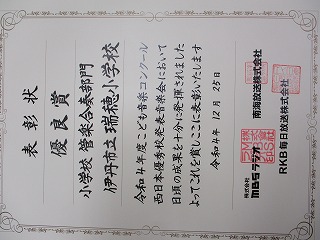 表彰状
優良賞
小学校 管楽合奏部門
伊丹市立瑞穂小学校
令和4年度こども音楽コンクール
西日本優秀校発表音楽会において
日頃の成果を十分に発揮されました
よってこれを賞しここに表彰いたします
令和4年12月25日
株式会社 MBSラジオ
RKB毎日放送株式会社
南海放送株式会社